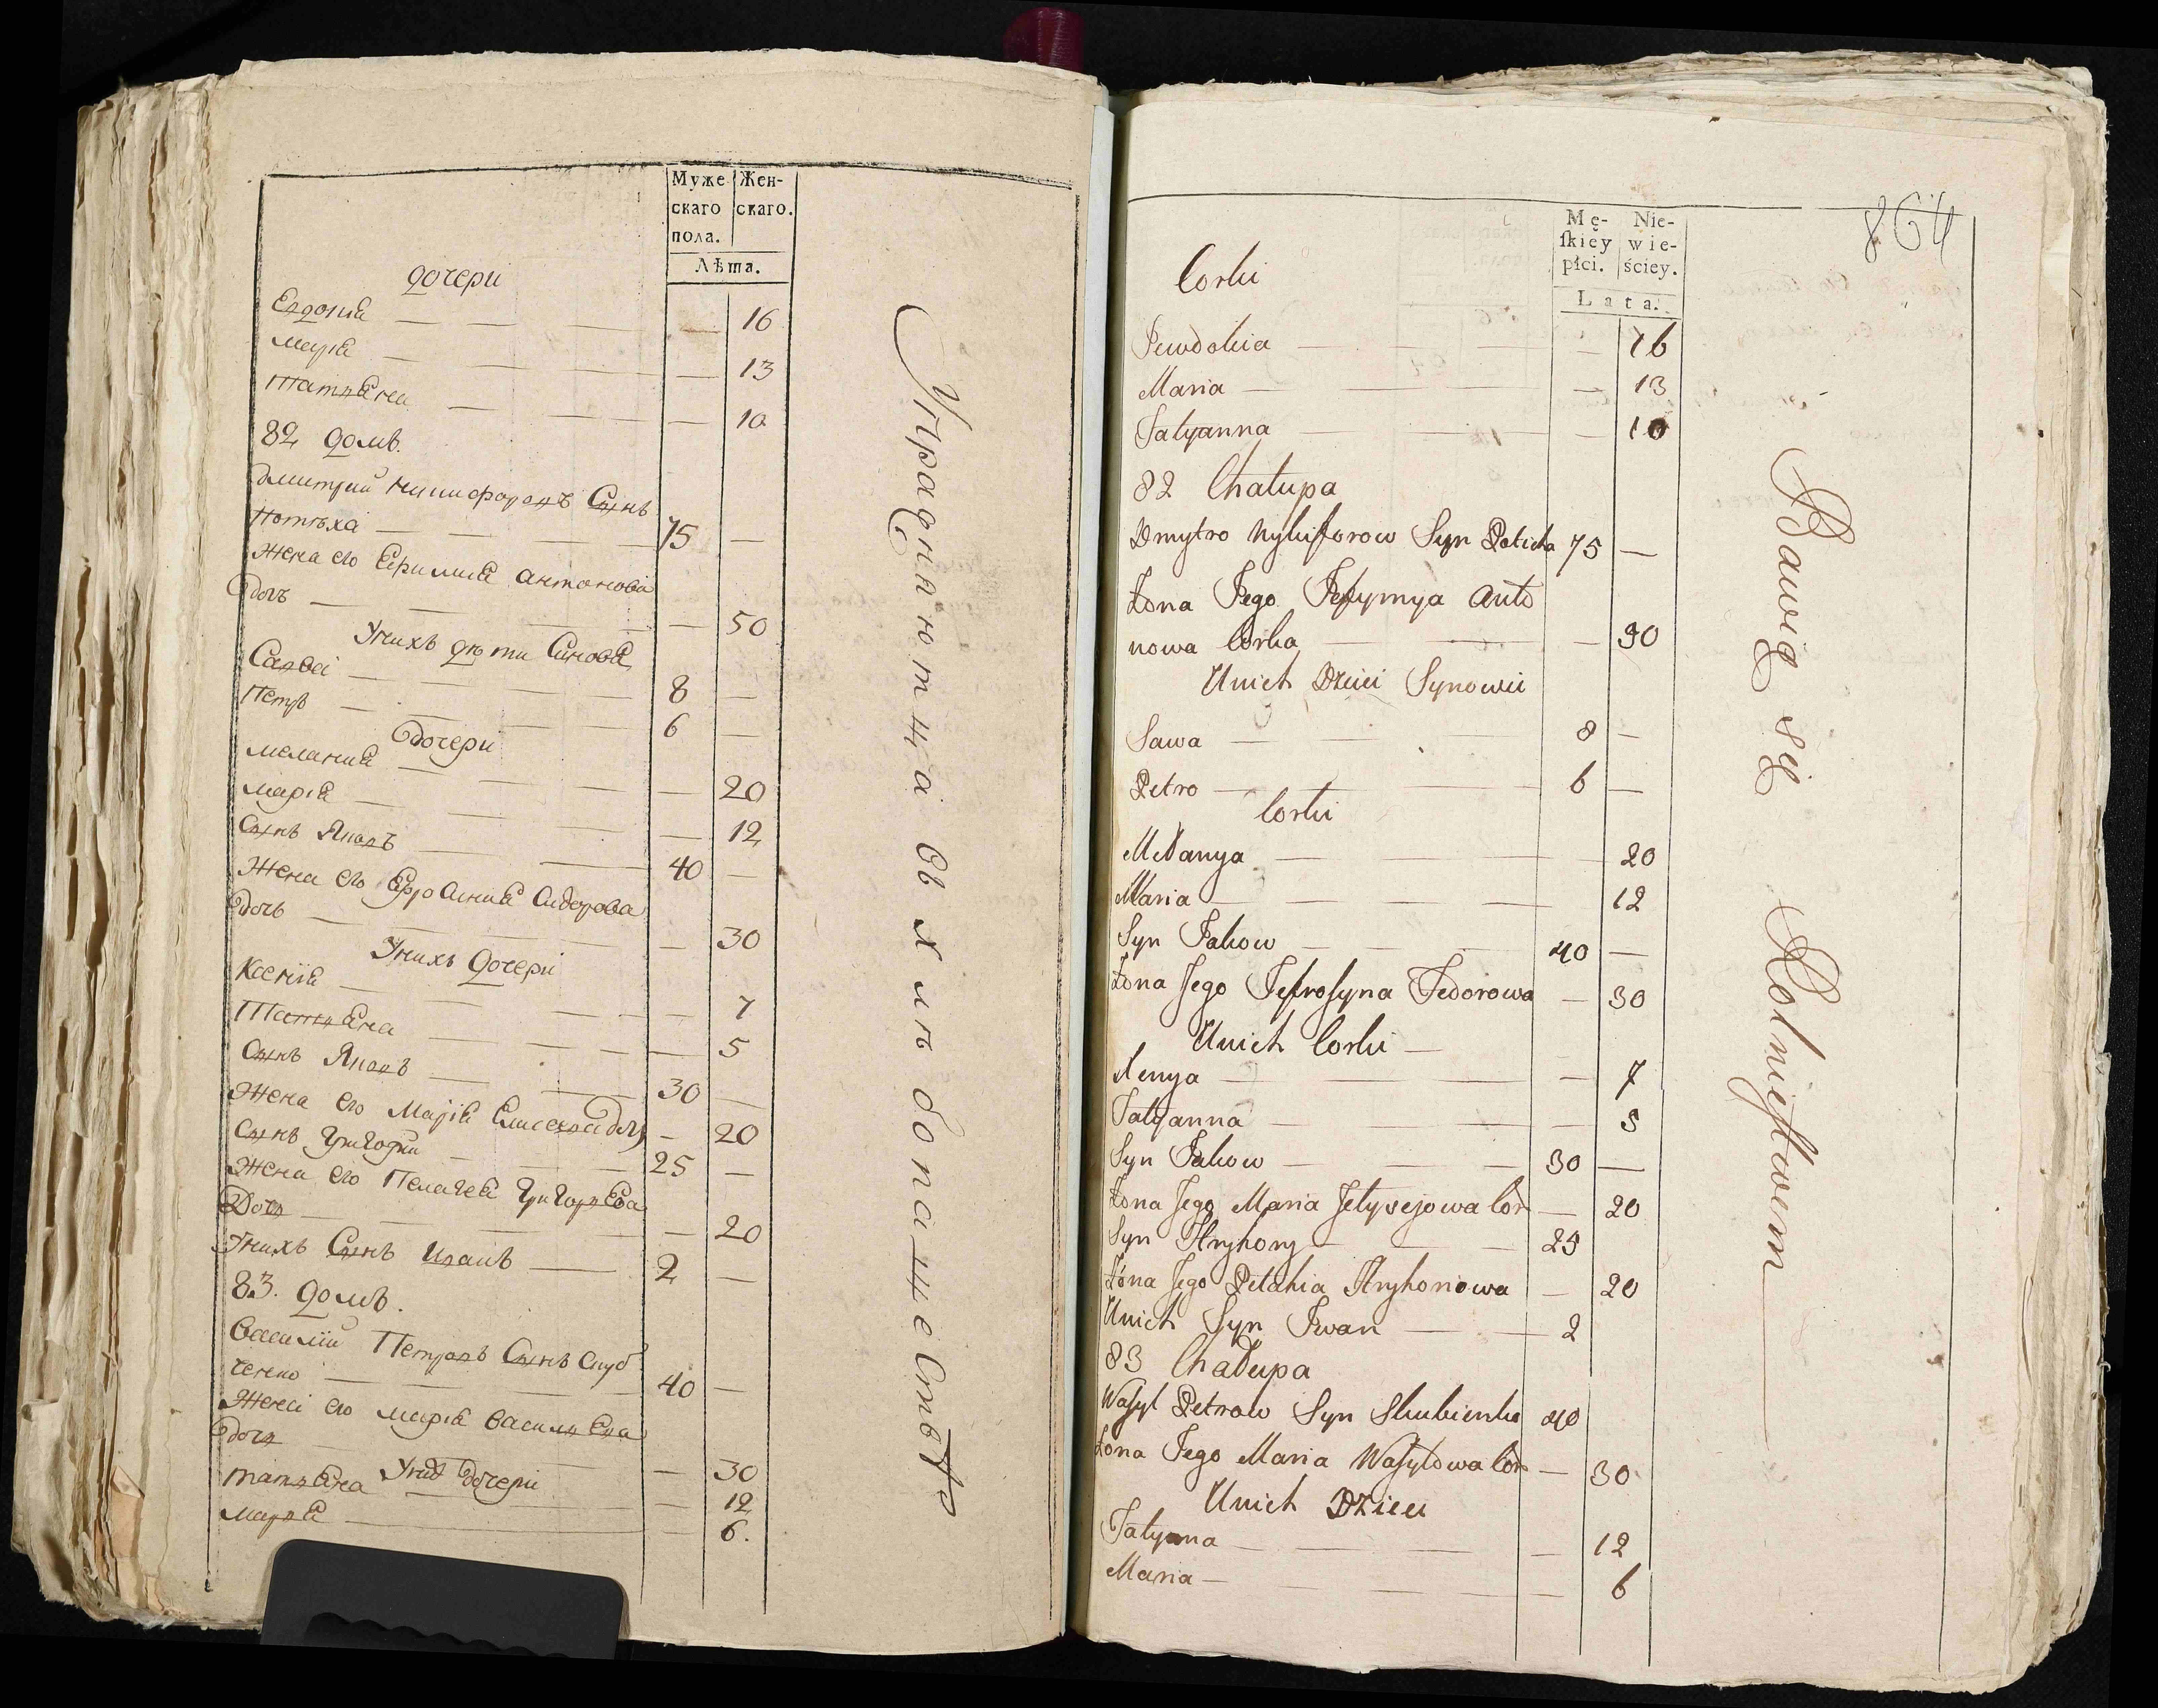 Муже
скаго
пола.
Жен-
скаго.
Лѣта.
дочери
Евдокия — — — 16
Мария — — 13
Татьяна — — 10
82 домъ.
Дмитрий Никифоровъ Сынъ
Потѣха — — 75 —
Жена его Ефимия Антонова
дочъ — — — 50
Унихъ дѣти Синовя
Савва — — 8 —
Петръ — — 6 —
дочери
Мелания — — — 20
Мария — — 12
Сынъ Яковъ — — 40 —
Жена его Ефросиния Сидорова
дочь — — — 30
Унихъ дочери
Ксения — — — 7
Татьяна — — — 5
Сынъ Яковъ — — 30 —
Жена его Мария Елисеева дочь — 20
Сынъ Григорий — 25 —
Жена его Пелагея Григорьева
Дочь — — — 20
Унихъ Сынъ Иванъ — 2 —
83. домъ.
Василий Петровъ Сынъ Скуб
ченко — — 40 —
Жена его Мария Васильева
дочь — — — 30
Унихъ дочери
Татьяна — — 12
Марья — — 6.
Упражняются въ хлѣбопашествѣ
864
Mę-
ſkiéy
płci.
Nie-
wie-
ściey.
Lata.
Corki
Jewdokia — — — 16
Maria — — — 13
Tatyanna — — — 10
82 Chałupa
Dmytro Nykiforow Syn Poticha 75 —
Żona Jego Jefymya Anto
nowa Corka — — — 30
Unich Dzieci Synowii
Sawa — — 8 —
Petro — — 6 —
Corki
Mełanya — — — 20
Maria — — — 12
Syn Jakow — — 40 —
Żona Jego Jefrosyna Fedorowa — 30
Unich Corki —
Xenya — — — 7
Tatyanna — — — 5
Syn Jakow — — 30 —
Żona Jego Maria Jełysejowa Cor — 20
Syn Hryhory — — 25
Żona Jego Pełahia Hryhorowa — 20
Unich Syn Iwan — — 2
83 Chałupa
Wasyl Petrow Syn Skubienko 40
Żona Jego Maria Wasyłowa Cor — 30
Unich Dzieci
Tatyana — — — 12
Maria — — — 6
Bawią się Rolnictwem